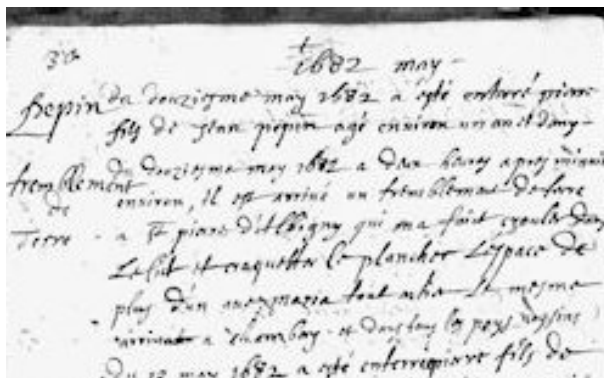 1682 may
pepin
du douziesme may 1682 a esté enterré pierre
fils de Jean pepin agé environ un an et demy
tremblement
de
Terre
du douziesme may 1682 a deux heures apres minuit
environ, il est arrivé un tremblement de terre
a St piere d'Albigny qui ma fait crouler dans
Le lit et craquetter le plancher L'espace de
plus d'un avemaria tout Le mesme
arrivat a Chambery et dans tous les pays voysins
du 12 may 1682 a esté enterré piere fils de